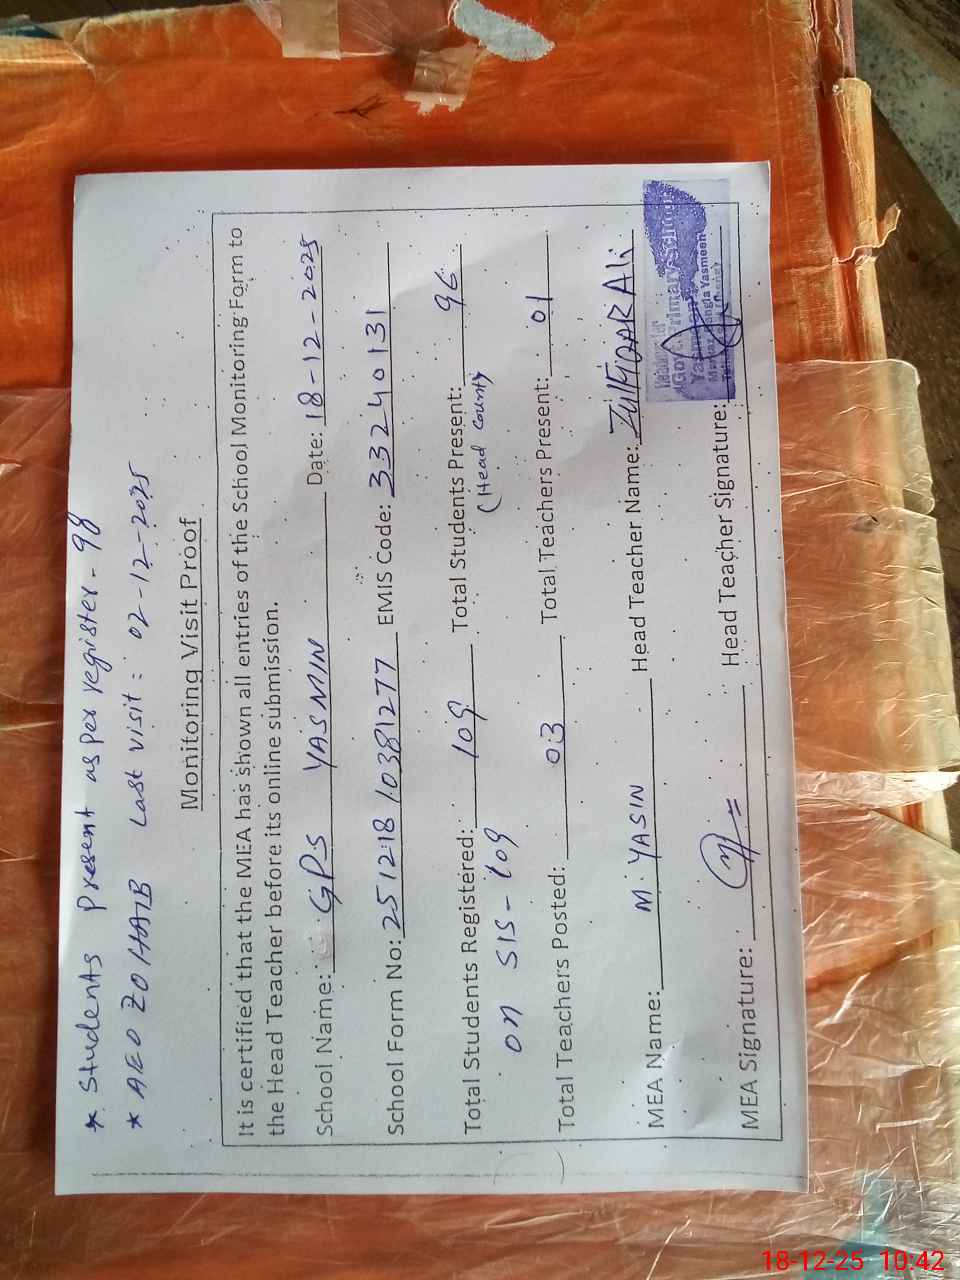 * Students Present as per register - 98
* AEO ZOHAIB Last visit: 02-12-2025
Monitoring Visit Proof
It is certified that the MEA has shown all entries of the School Monitoring Form to
the Head Teacher before its online submission.
School Name: GPS YASMIN Date: 18-12-2025
School Form No: 25121810381277 EMIS Code: 33240131
Total Students Registered: 109 Total Students Present: 96
on SIS - 109 (Head Count)
Total Teachers Posted: 03 Total Teachers Present: 01
MEA Name: M. YASIN Head Teacher Name: ZulFIQAR Ali
MEA Signature: Head Teacher Signature:
Headmaster
Govt. Primary School
Yasmeen
Bangla Yasmeen
18-12-25 10:42